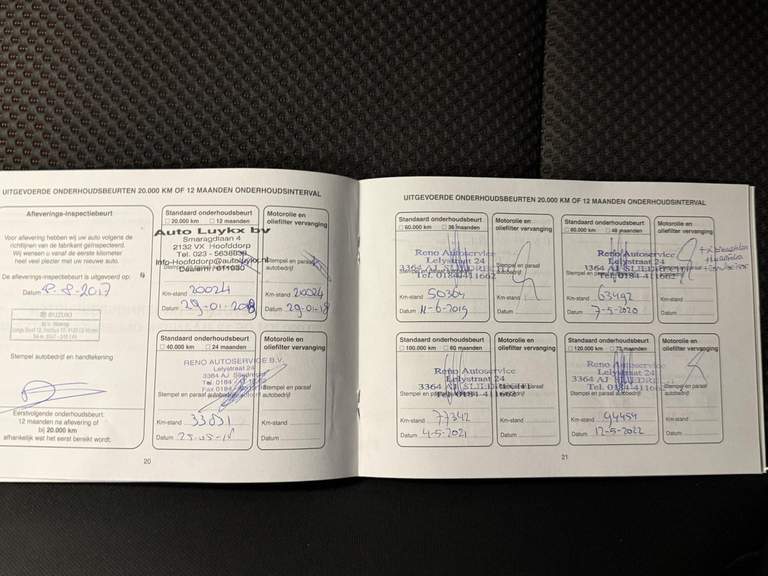 UITGEVOERDE ONDERHOUDSBEURTEN 20.000 KM OF 12 MAANDEN ONDERHOUDSINTERVAL
Afleverings-inspectiebeurt
Voor aflevering hebben wij uw auto volgens de
richtlijnen van de fabrikant geïnspecteerd.
Wij wensen u vanaf de eerste kilometer
heel veel plezier met uw nieuwe auto.
De afleverings-inspectiebeurt is uitgevoerd op:
Datum 8-8-2017
SUZUKI
Stempel autobedrijf en handtekening
Eerstvolgende onderhoudsbeurt:
12 maanden na aflevering of
bij 20.000 km
afhankelijk wat het eerst bereikt wordt.
Standaard onderhoudsbeurt
20.000 km 12 maanden
Auto Luykx bv
Smaragdlaan 4
2132 VX Hoofddorp
Tel. 023 - 5638838
Info-Hoofddorp@autoluykx.nl
Dealernr. 011030
Km-stand 20024
Datum 29-01-2018
Motorolie en
oliefilter vervanging
Stempel en paraaf
autobedrijf
Km-stand 20024
Datum 29-01-18
Standaard onderhoudsbeurt
40.000 km 24 maanden
RENO AUTOSERVICE B.V.
Lelystraat 24
3364 AJ Sliedrecht
Tel. 0184 -
Fax 0184 -
Stempel en paraaf autobedrijf
Km-stand 33831
Datum 25-05-18
Motorolie en
oliefilter vervanging
Stempel en paraaf
autobedrijf
Km-stand
Datum
20
UITGEVOERDE ONDERHOUDSBEURTEN 20.000 KM OF 12 MAANDEN ONDERHOUDSINTERVAL
Standaard onderhoudsbeurt
60.000 km 36 maanden
Reno Autoservice
Lelystraat 24
3364 AJ SLIEDRECHT
Tel. 0184-411662
Km-stand 50304
Datum 11-6-2019
Motorolie en
oliefilter vervanging
Stempel en paraaf
autobedrijf
Km-stand
Datum
Standaard onderhoudsbeurt
80.000 km 48 maanden
Reno Autoservice
Lelystraat 24
3364 AJ SLIEDRECHT
Tel. 0184-411662
Km-stand 63492
Datum 7-5-2020
Motorolie en
oliefilter vervanging
Km-stand
Datum
Standaard onderhoudsbeurt
100.000 km 60 maanden
Reno Autoservice
Lelystraat 24
3364 AJ SLIEDRECHT
Tel. 0184-411662
Km-stand 77342
Datum 4-5-2021
Motorolie en
oliefilter vervanging
Stempel en paraaf
autobedrijf
Km-stand
Datum
Standaard onderhoudsbeurt
120.000 km 72 maanden
Reno Autoservice
Lelystraat 24
3364 AJ SLIEDRECHT
Tel. 0184-411662
Stempel en paraaf autobedrijf
Km-stand 94459
Datum 12-5-2022
Motorolie en
oliefilter vervanging
Stempel en paraaf
autobedrijf
Km-stand
Datum
21